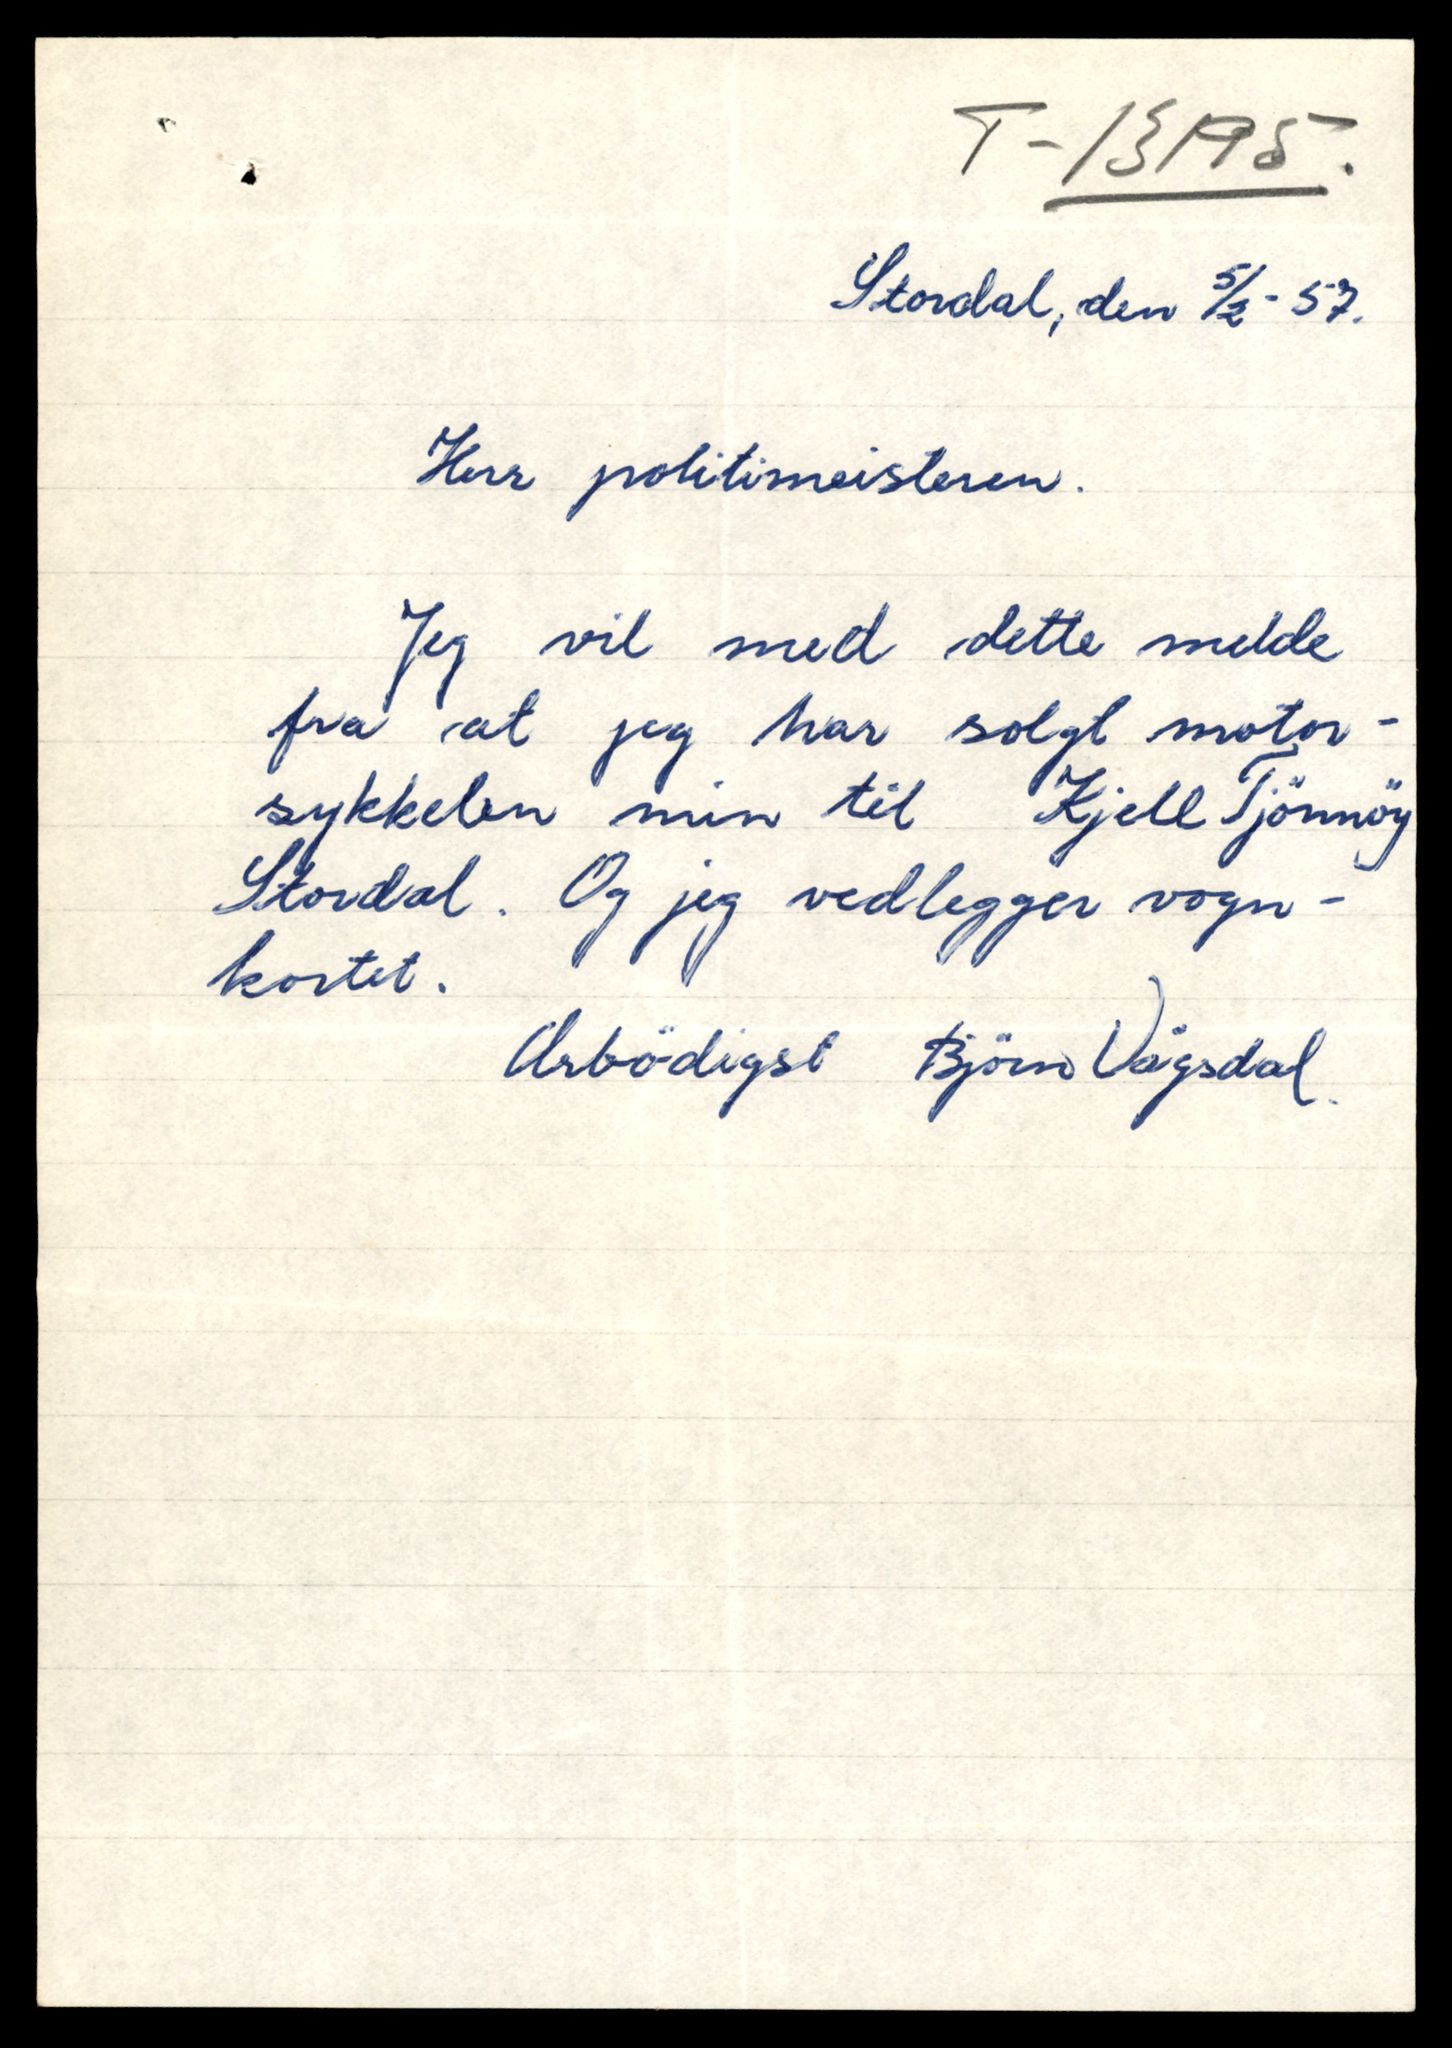 T-13195.
Stordal, den 5/2-57.
Herr politimeisteren.
Jeg vil med dette melde
fra at jeg har solgt motor-
sykkelen min til Kjell Tjönnöy
Stordal. Og jeg vedlegger vogn-
kortet.
Arbödigst Björn Vågsdal.